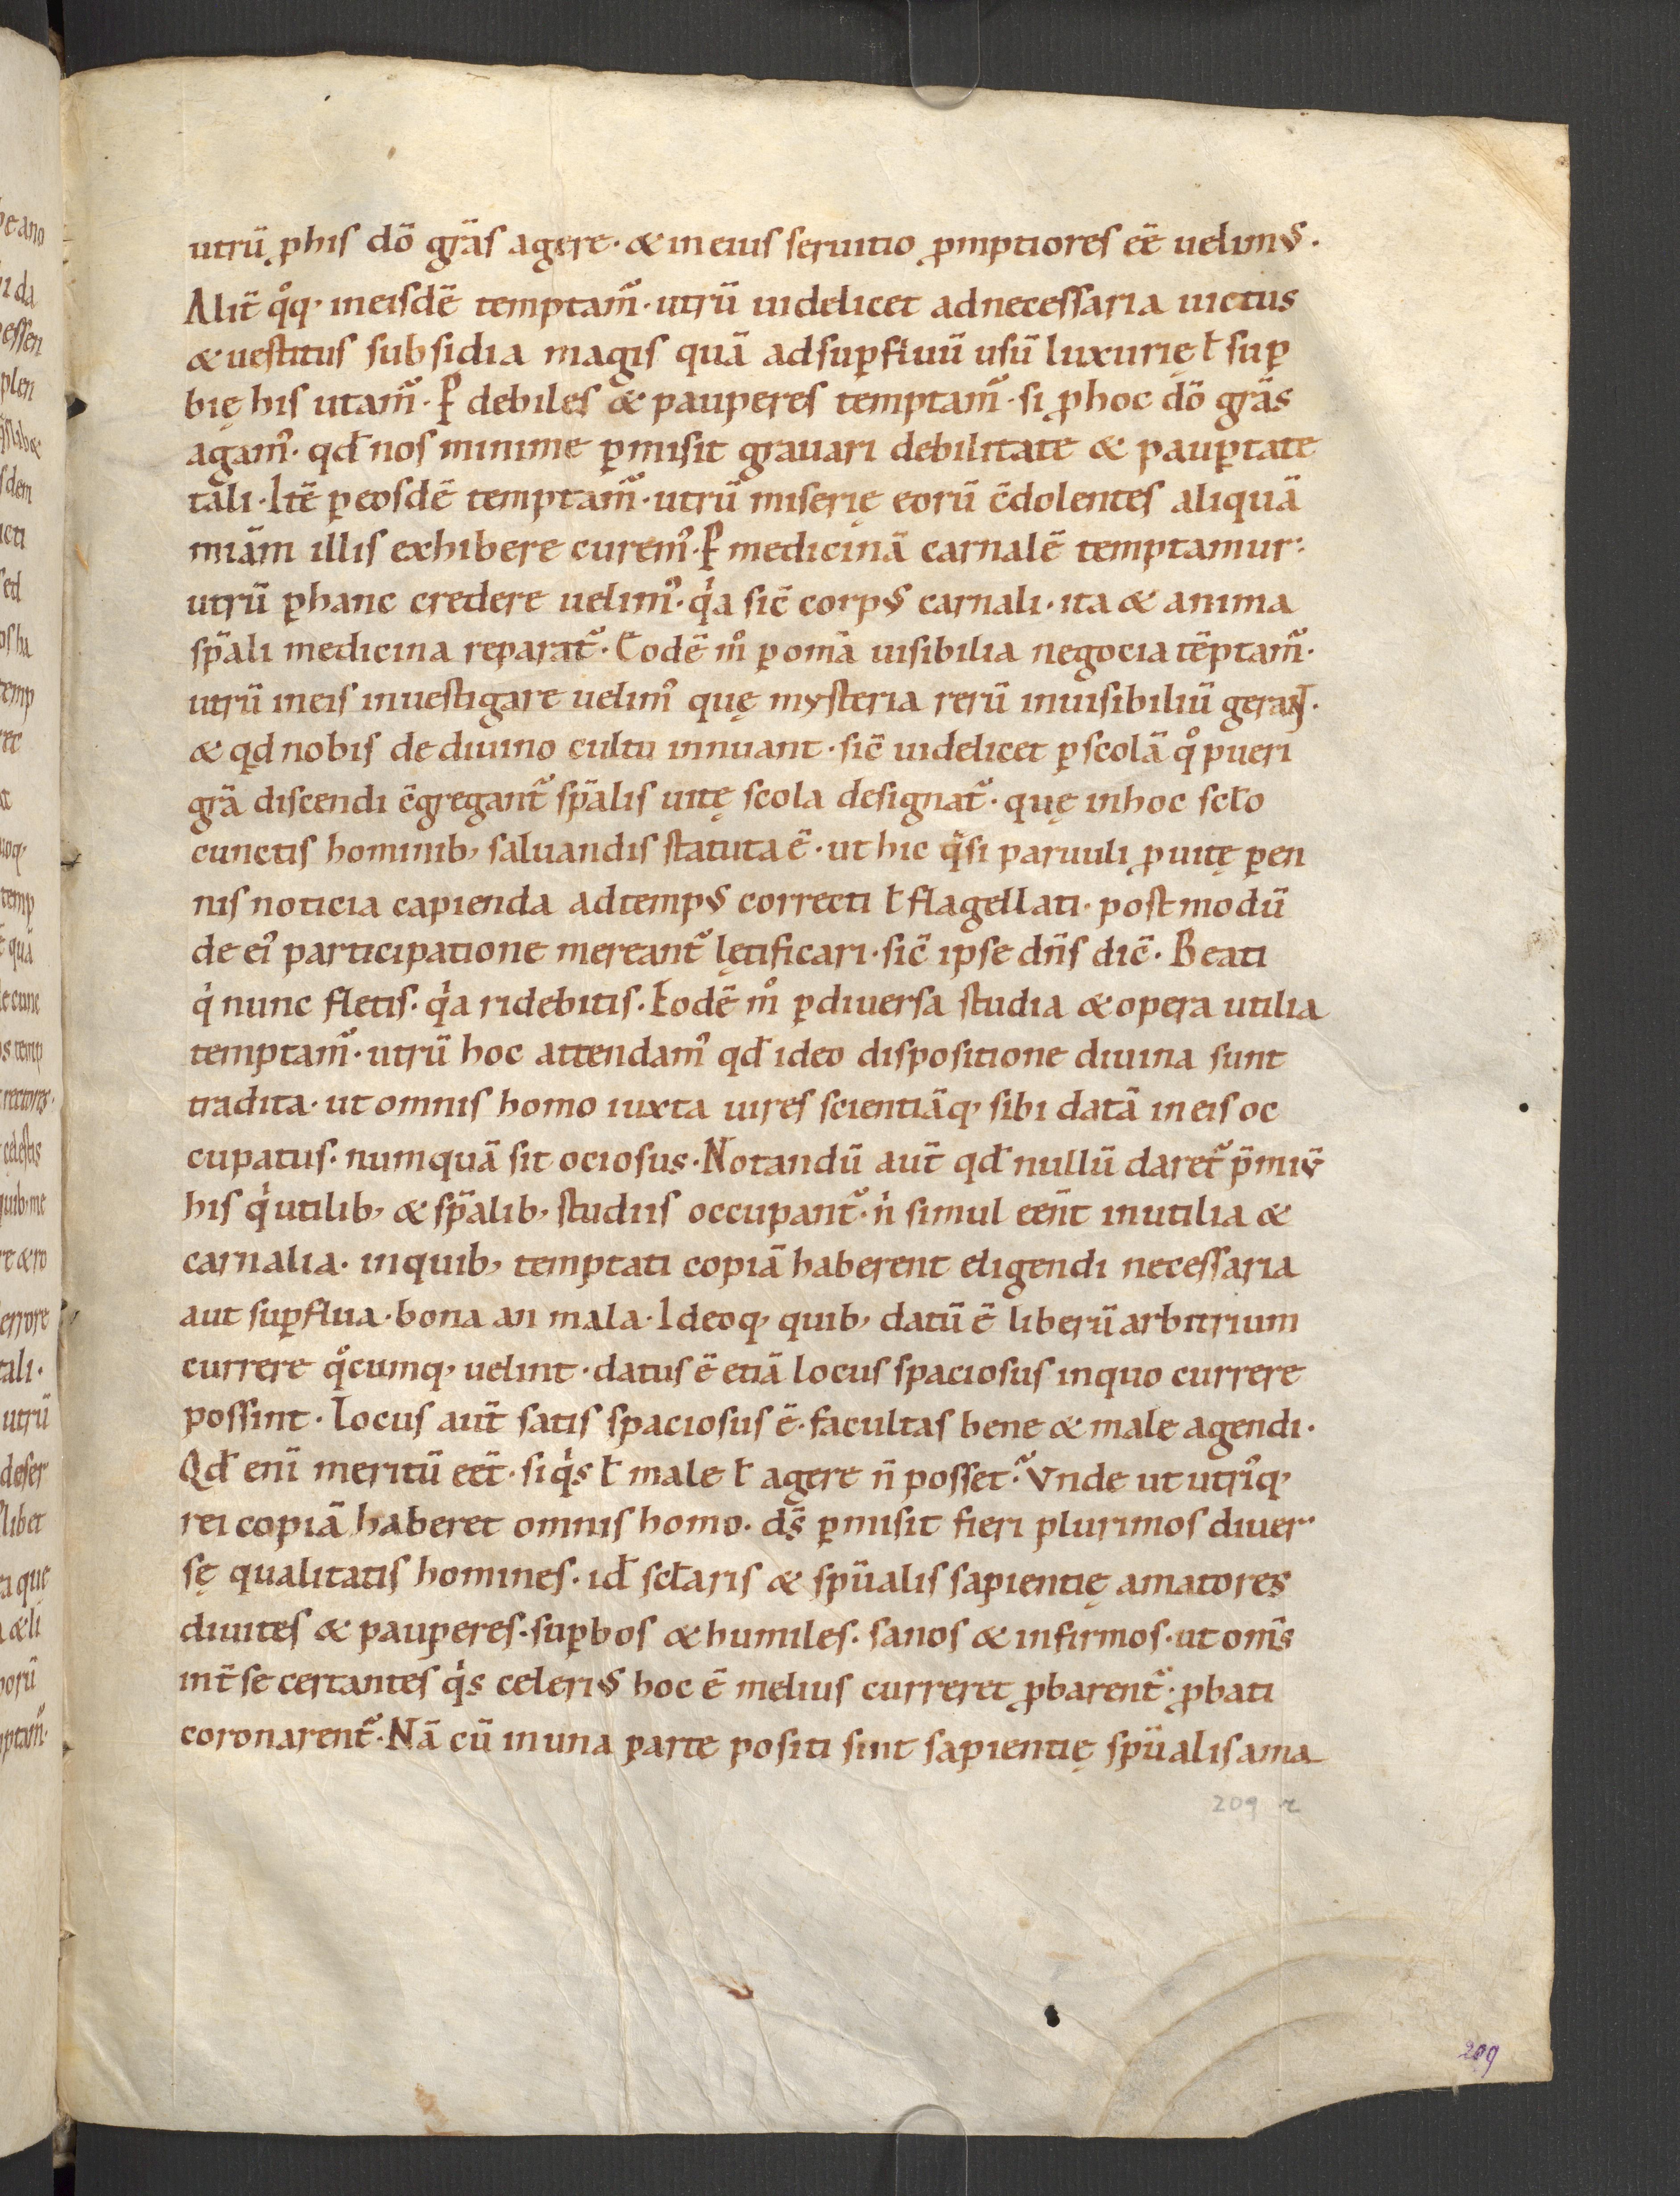 utrū ꝓ his dō gr̄as agere· & in eius seruitio ꝓmptiores eē̄ uelimꝰ·
Alit̄ qͦq; in eisdē temptam᷑· utrū uidelicet ad necessaria uictus
& uestitus subsidia magis quā ad suꝑfluū usū luxurię ł suꝑ
bię his utam᷑· Ꝑ debiles & pauperes temptam᷑· si ꝓ hoc dō gr̄as
agamꝰ· qđ nos minime ꝑmisit grauari debilitate & pauꝑtate
tali· Itē ꝑ eosdē temptam᷑· utrū miserię eorū c̄dolentes aliquā
miām illis exhibere curemꝰ· Ꝑ medicinā carnalē temptamur·
utrū ꝑ hanc credere uelimꝰ· qͥa sic̄ corpꝰ carnali· ita & anima
sp̄ali medicina reparat᷑· Eodē mͦ ꝑ om̄a uisibilia negocia tēptam᷑·
utrū in eis inuestigare uelimꝰ quę mysteria rerū inuisibiliū gerant·
& qd nobis de diuino cultu innuant· sic̄ uidelicet ꝑ scolā qͦ pueri
gr̄a discendi c̄gregant᷑ sp̄alis uitę scola designat᷑· quę in hoc scło
cunctis hominib; saluandis statuta ē· ut hic qͣsi paruuli ꝓ uitę ꝑen
nis noticia capienda ad tempꝰ correcti ł flagellati· postmodū
de eiꝰ participatione mereant᷑ lętificari· sic̄ ipse dn̄s dic̄· Beati
qͥ nunc fletis· qͥa ridebitis· Eodē mͦ ꝑ diuersa studia & opera utilia
temptam᷑· utrū hoc attendamꝰ qđ ideo dispositione diuina sunt
tradita· ut omnis homo iuxta uires scientiāq; sibi datā in eis oc
cupatus· numquā sit ociosus· Notandū aut̄ qđ nullū daret᷑ p̄miū
his qͥ utilib; & sp̄alib; studiis occupant᷑· nͥ simul eēnt inutilia &
carnalia· in quib; temptati copiā haberent eligendi necessaria
aut suꝑflua· bona an mala· Ideoq; quib; datū ē liberū arbitrium
currere qͦcumq; uelint· datus ē etiā locus spaciosus in quo currere
possint· Locus aut̄ satis spaciosus ē· facultas bene & male agendi·
Qđ eni̅ meritū eēt· si qͥs ł male ł agere n̄ posset᷑· Vnde ut utriꝰq;
rei copiā haberet omnis homo· ds̄ ꝑmisit fieri plurimos diuer
sę qualitatis homines· id̄ scłaris & sp̄ualis sapientię amatores
diuites & pauperes· suꝑbos & humiles· sanos & infirmos· ut om̄s
int̄ se certantes qͥs celeriꝰ hoc ē melius curreret ꝓbarent᷑· ꝓbati
coronarent᷑· Nā cū in una parte positi sint sapientię sp̄ualis ama
209 r
209